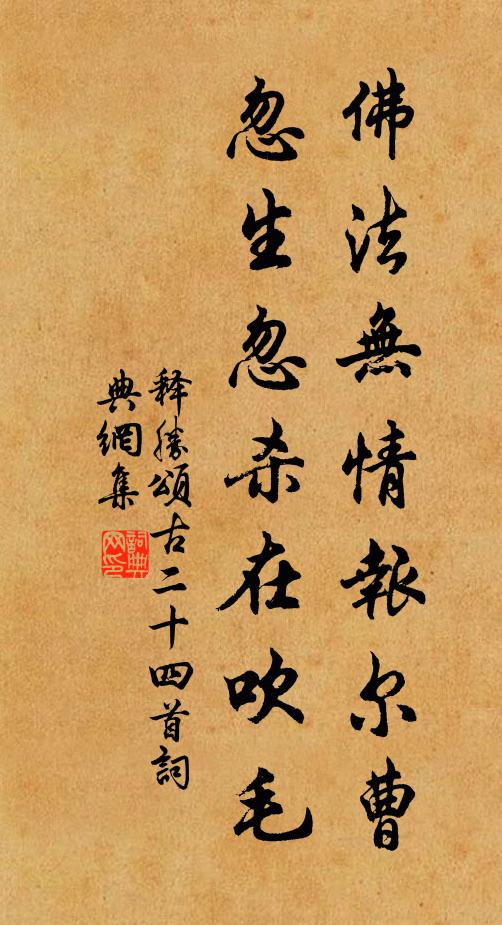 佛法無情報尔曹
忽生忽杀在吹毛
释勝頌古二十四首詞
典網集
詞典
网印